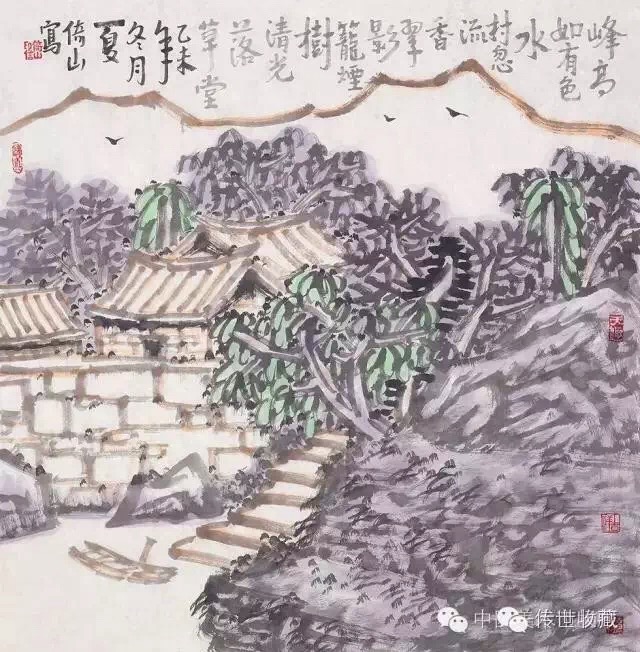 峰高
如有色
水
村忽
流
香
翠
影
籠煙
樹
清光
落
草堂
乙未年
冬月
夏
倚山
寫
传世收藏